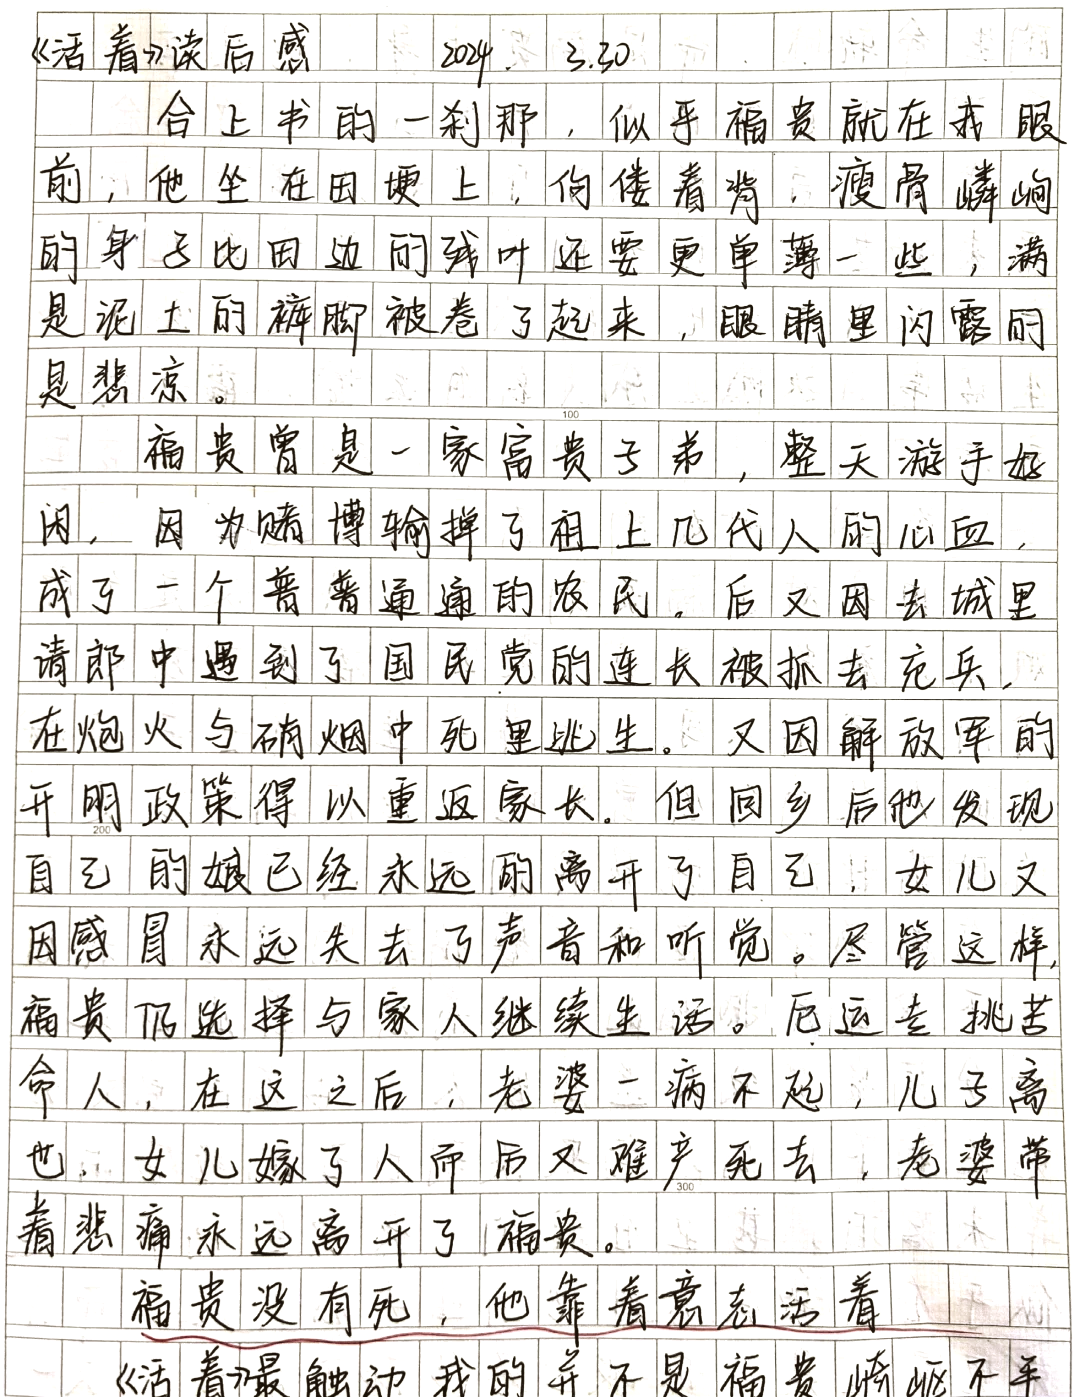 《活着》读后感 2024. 3.30
合上书的一刹那，似乎福贵就在我眼
前，他坐在田埂上，佝偻着背，瘦骨嶙峋
的身子比田边的残叶还要更单薄一些，满
是泥土的裤脚被卷了起来，眼睛里闪露的
是悲凉。
100
福贵曾是一家富贵子弟，整天游手好
闲，因为赌博输掉了祖上几代人的心血，
成了一个普普通通的农民。后又因去城里
请郎中遇到了国民党的连长被抓去充兵，
在炮火与硝烟中死里逃生。又因解放军的
开明政策得以重返家长。但回乡后他发现
200
自己的娘已经永远的离开了自己，女儿又
因感冒永远失去了声音和听觉。尽管这样，
福贵仍选择与家人继续生活。厄运专挑苦
命人，在这之后，老婆一病不起，儿子离
世，女儿嫁了人而后又难产死去，老婆带
300
着悲痛永远离开了福贵。
福贵没有死，他靠着意志活着
《活着》最触动我的并不是福贵崎岖不平